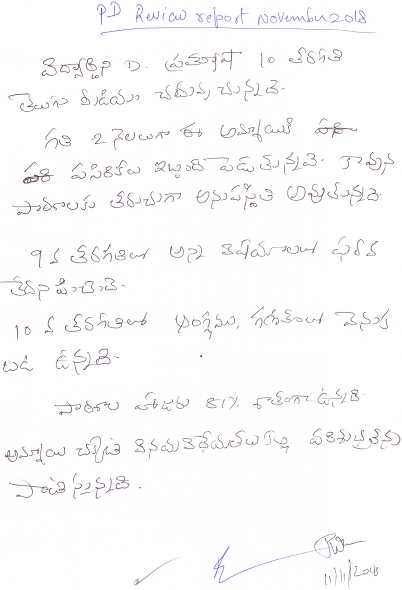 PD Review report November 2018
విద్యార్థిని D. ప్రత్యూషా 10 తరగతి
తెలుగు మీడియం చదువు చున్నది.
గత 2 నెలలుగా ఈ అమ్మాయికి
పసిరికలు ఇబ్బంది పెడుతున్నవి. కావున
పాఠశాలకు తరుచుగా అనుపస్థితి అవుతున్నది
9 వ తరగతిలో అన్ని విషయాలలో ఫరవా
లేదనిపించింది.
10 వ తరగతిలో ఆంగ్లము, గణితంలో వెనుక
బడి ఉన్నది.
పాఠశాల హాజరు 81% శాతంగా ఉన్నది.
అమ్మాయి చక్కటి వినయవిధేయతలు కల్గి పరిశుభ్రతను
పాటిస్తున్నది.
11/11/2018